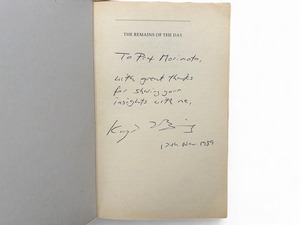 THE REMAINS OF THE DAY
To Prof Morimoto,
with great thanks
for sharing your
insights with me,
12th Nov 1989